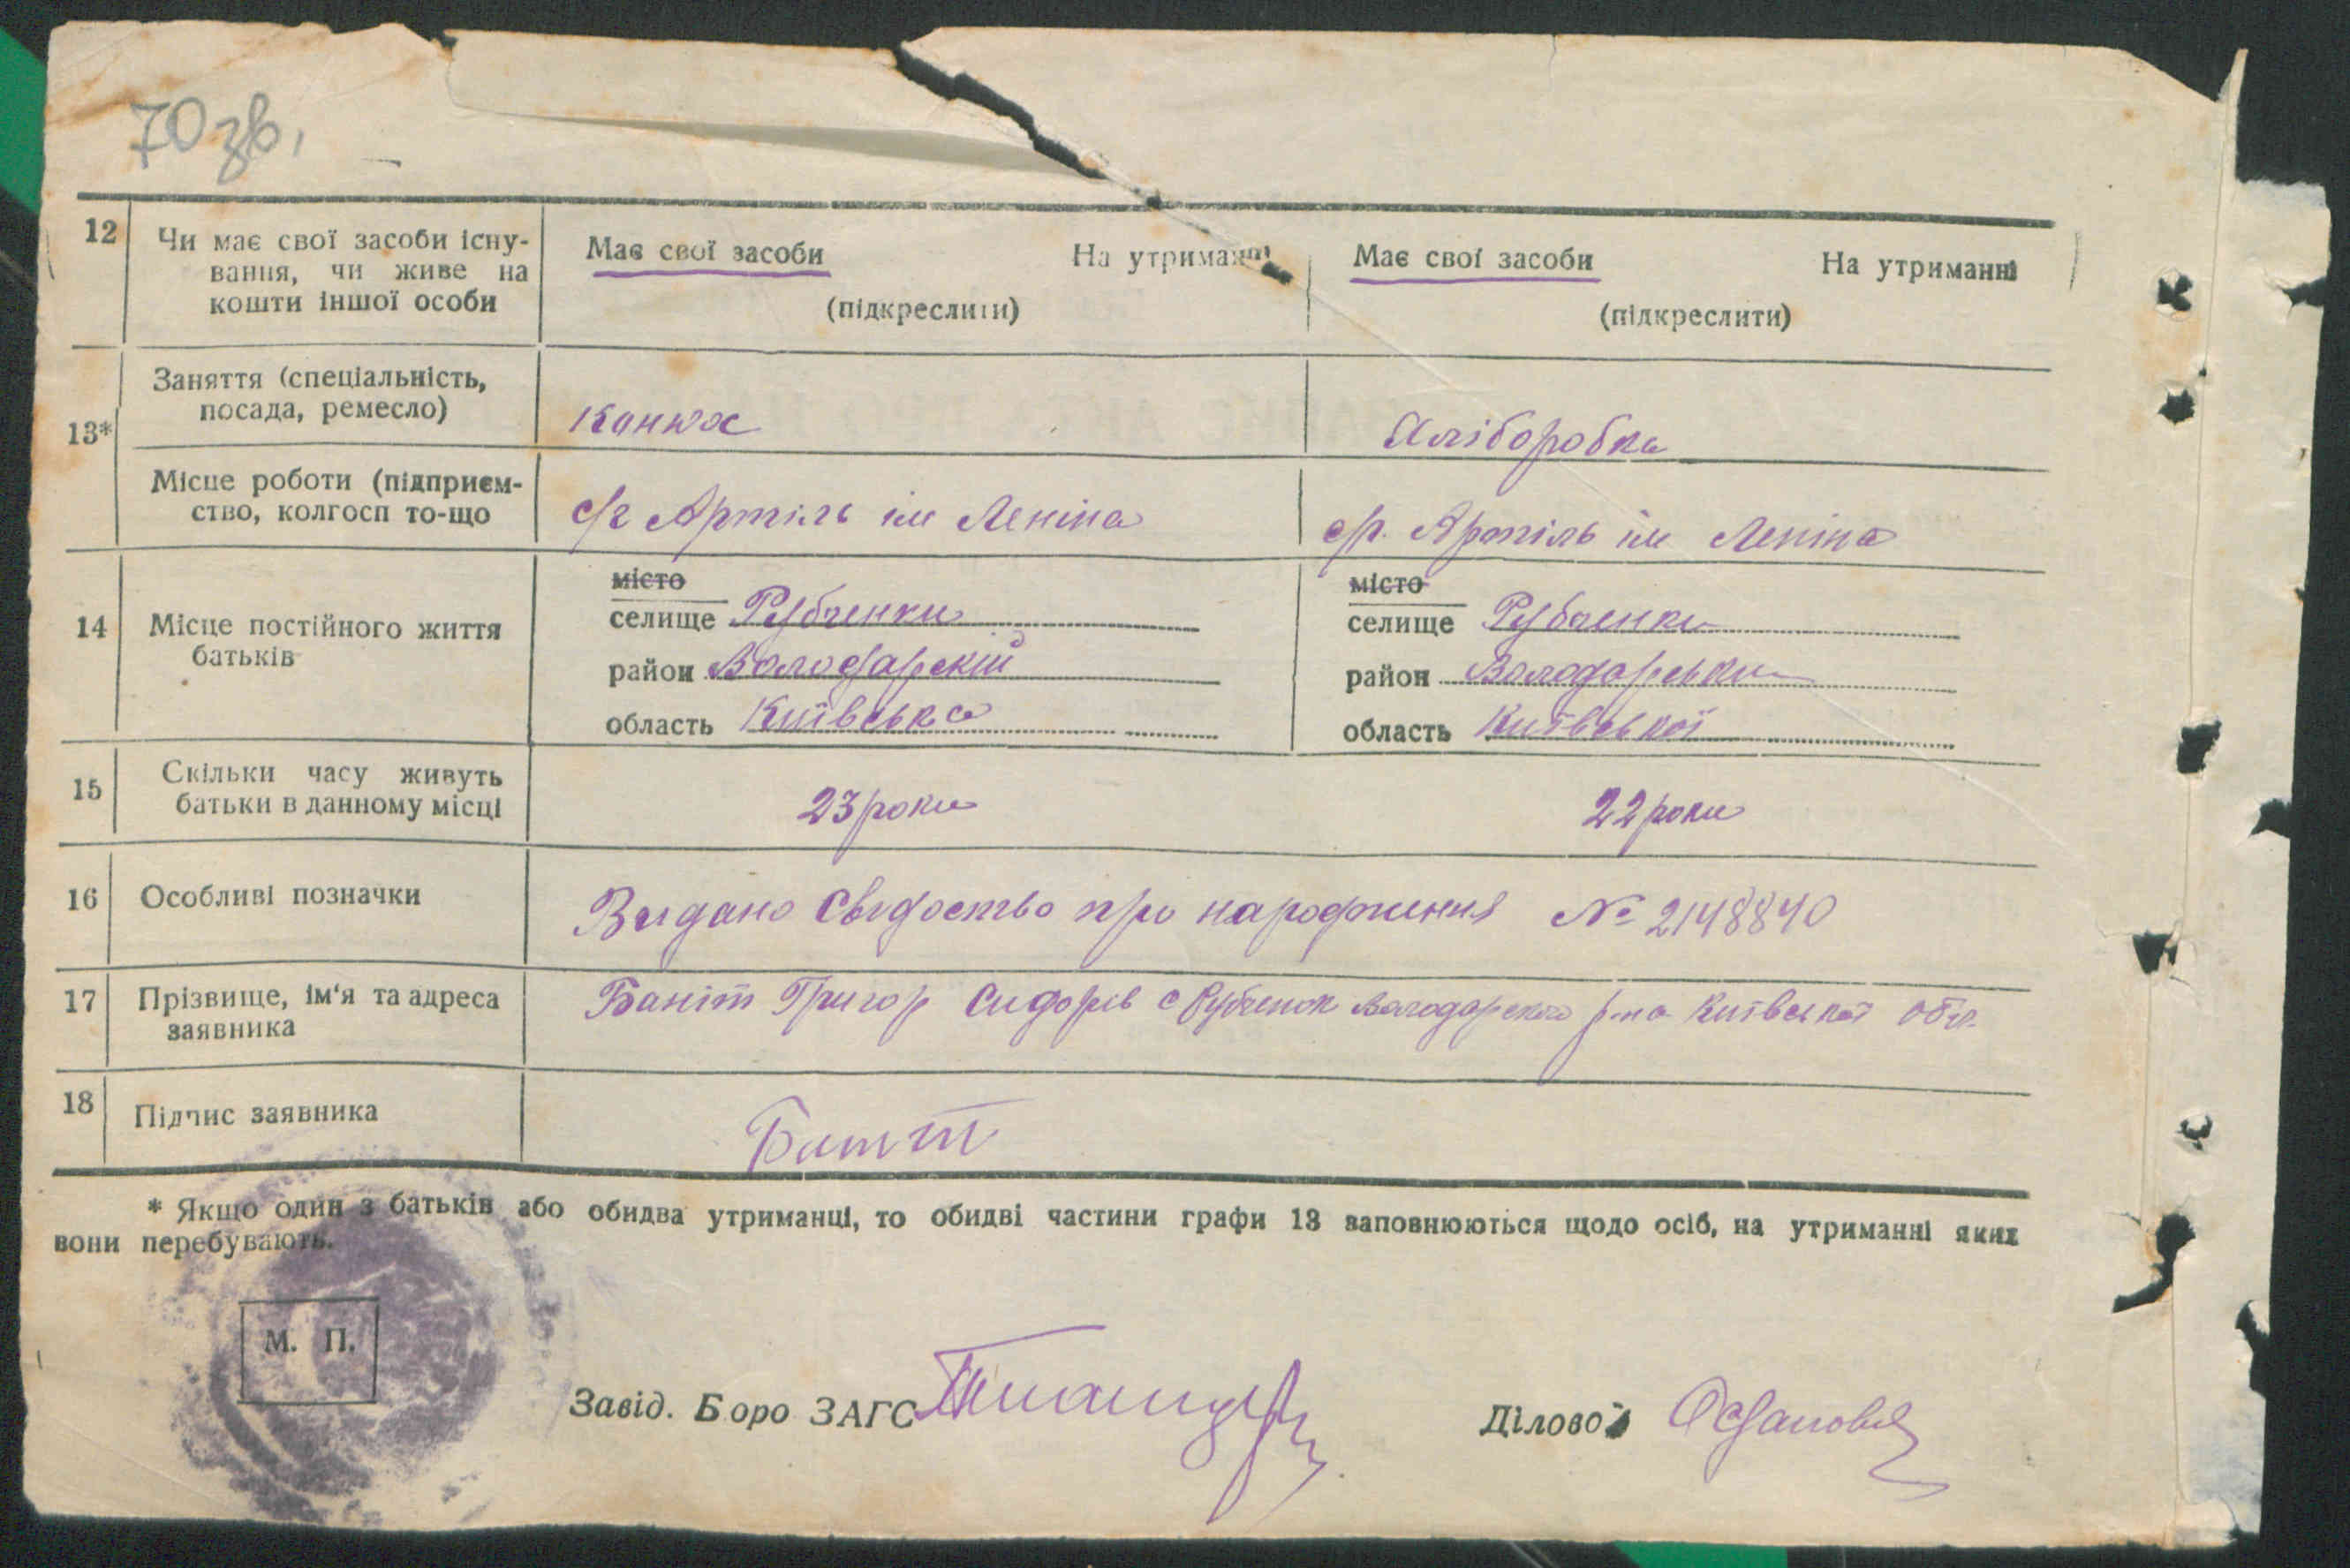 70 зв.
12 Чи має свої засоби існу-
вання, чи живе на
кошти іншої особи
Має свої засоби На утриманні
(підкреслити)
Має свої засоби На утриманні
(підкреслити)
13*
Заняття (спеціальність,
посада, ремесло)
Конюх
Хліборобка
Місце роботи (підприєм-
ство, колгосп то-що
с/г Артіль ім Леніна
с/г. Артіль ім Леніна
14 Місце постійного життя
батьків
місто
селище Рубченки
район Володарскій
область Київська
місто
селище Рубченки
район Володарськи
область Київської
15 Скільки часу живуть
батьки в данному місці
23 роки
22 роки
16 Особливі позначки
Видано Свідоство про народження № 2148840
17 Прізвище, ім'я та адреса
заявника
Баніт Григор Сидорів с Рубченок Володарского р-на Київської обл.
18 Підпис заявника
* Якщо один з батьків або обидва утриманці, то обидві частини графи 13 заповнюються щодо осіб, на утриманні яких
вони перебувають.
М. П.
Завід. Боро ЗАГС
Діловод